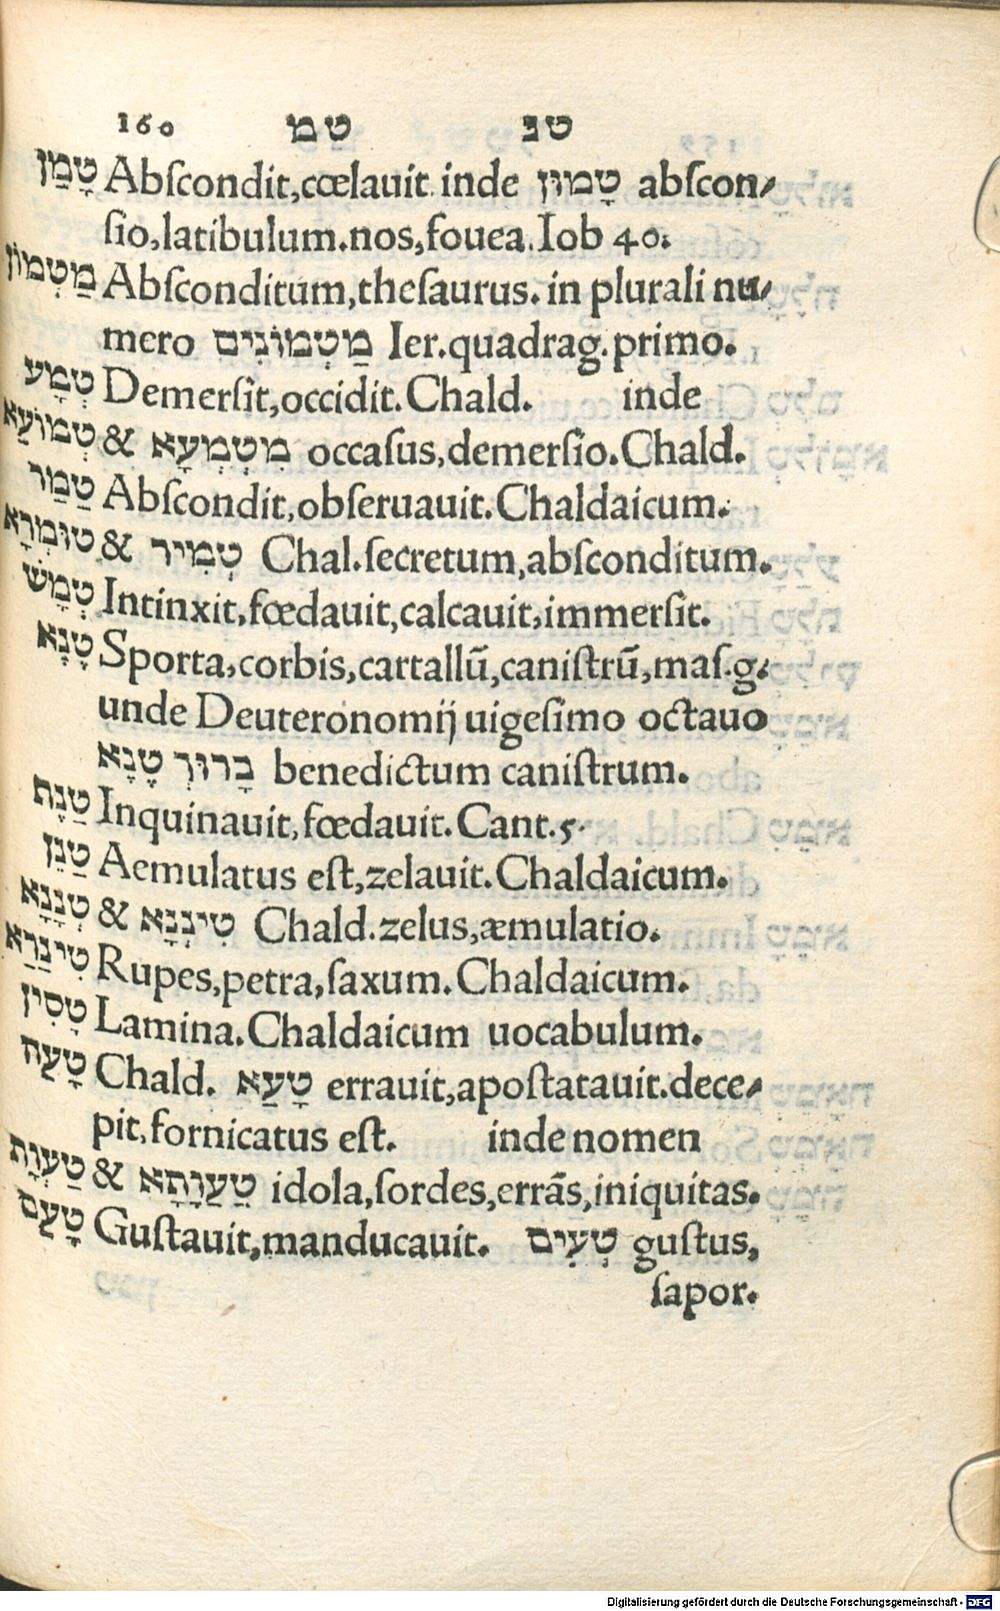 160 טמ טנ
טָמַן Abſcondit,cœlauit inde טָמוּן abſcon-
ſio,latibulum.nos,fouea.Iob 40.
מַטְמוֹן Abſconditum,theſaurus. in plurali nu-
mero מַטְמוֹנִים Ier.quadrag.primo.
טְמָע Demerſit,occidit.Chald. inde
טְמוֹעָא & מִטְמְעָא occaſus,demerſio.Chald.
טַמַר Abſcondit,obſeruauit.Chaldaicum.
טוּמְרָא & טְמִיר Chal.ſecretum,abſconditum.
טְמָשׁ Intinxit,fœdauit,calcauit,immerſit.
טֶנָא Sporta,corbis,cartallū,caniſtrū,maſ.g.
unde Deuteronomij uigeſimo octauo
בָרוּךְ טֶנָא benedictum caniſtrum.
טַנָת Inquinauit,fœdauit.Cant.5.
טַנֵן Aemulatus eſt,zelauit.Chaldaicum.
טְנָנָא & טִינְנָא Chald.zelus,æmulatio.
טִינַרָא Rupes,petra,ſaxum.Chaldaicum.
טָסִין Lamina.Chaldaicum uocabulum.
טָעַה Chald. טָעַא errauit,apoſtatauit.dece-
pit,fornicatus eſt. inde nomen
טַעְוָת & טַעֲוָתָא idola,ſordes,errās,iniquitas.
טָעַם Guſtauit,manducauit. טְעִים guſtus,
ſapor.
Digitalisierung gefördert durch die Deutsche Forschungsgemeinschaft - DFG